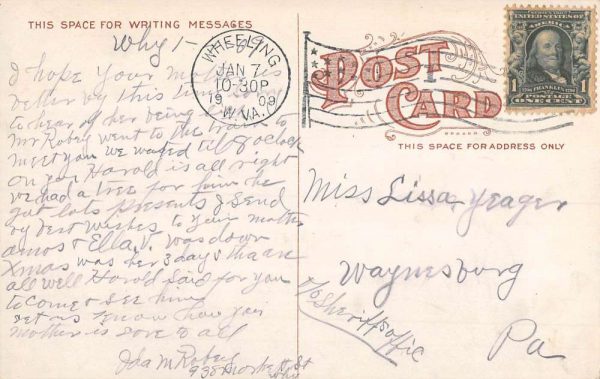 THIS SPACE FOR WRITING MESSAGES
WHEELING
JAN 7
10-30P
1909
W.VA.
POST
CARD
THIS SPACE FOR ADDRESS ONLY
UNITED STATES OF AMERICA
FRANKLIN
1 1
ONE CENT
I hope your
better by this time
to hear of her being
Mr Robey went to the train to
meet you we waited till 8 oclock
on you Harold is all right
we had a tree for him he
got lots presents I send
my best wishes to your mother
Amos & Ella V. was down
Xmas was her 3 days
all well Harold said for you
to come & see him
let us know how your
mother is love to all
Ida M Robey
938 Market St
Miss Lissa Yeager
Waynesburg
c/o Sheriffs office
Pa